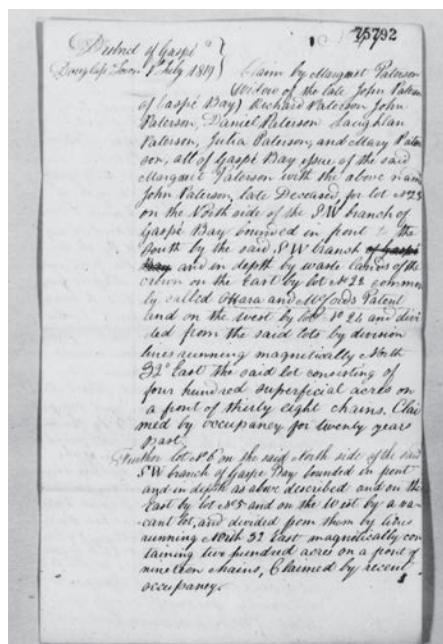 75792
District of Gaspé
Douglass Town 1st July 1819
Claim by Margaret Paterson
(Widow of the late John Paterson
of Gaspé Bay) Richard Paterson John
Paterson, Daniel Paterson Laughlan
Paterson, Julia Paterson, and Mary Pater
son, all of Gaspé Bay issue of the said
Margaret Paterson with the above named
John Paterson, late Deceased, for lot No 23
on the North side of the SW branch of
Gaspé Bay bounded in front to the
South by the said SW branch of Gaspé
Bay and in depth by waste lands of the
crown on the East by lot No 22 common
ly called OHara and McCords Patent
and on the west by lot No 24 and divi
ded from the said lots by division
lines running magnetically North
32° East the said lot consisting of
four hundred superficial acres on
a front of thirty eight chains. Clai
med by occupancy for twenty years
past.
Further lot No 6 on the said North side of the said
SW branch of Gaspé Bay bounded in front
and in depth as above described and on the
East by lot No 5 and on the West by a va-
cant lot, and divided from them by lines
running North 32 East magnetically con
taining two hundred acres on a front of
nineteen chains, Claimed by recent
occupancy.